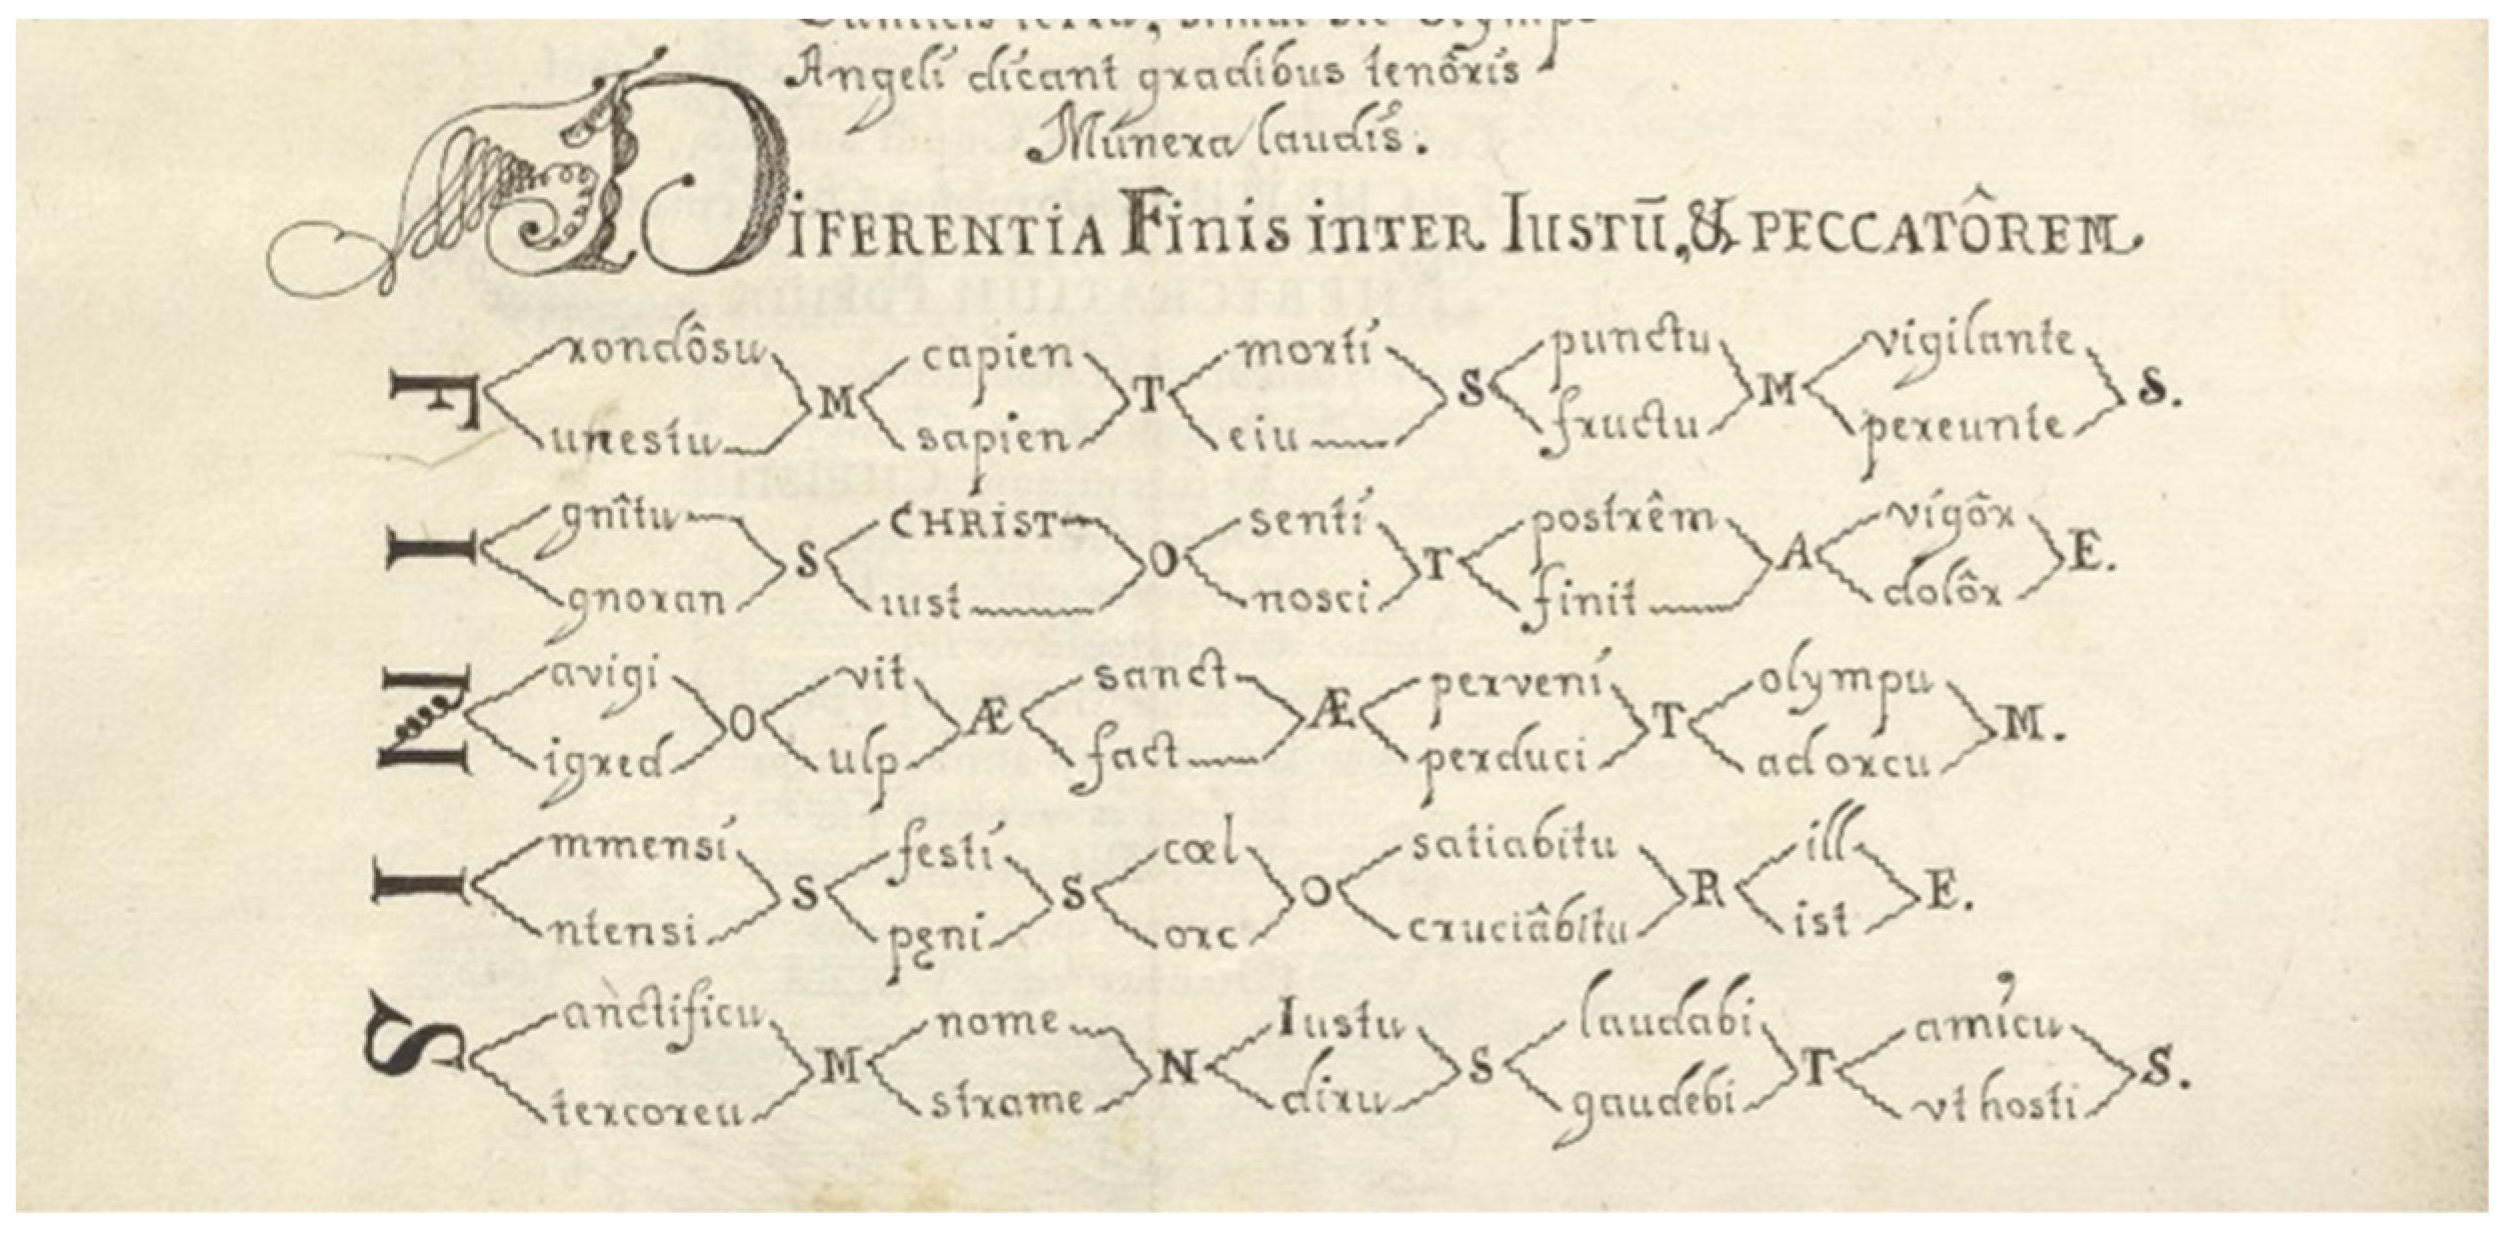 Angeli dicant gradibus tenôris
Munera laudis.
DIFERENTIA Finis inTER IUSTŪ, & PECCATÔREM
rondôsu capien morti punctu vigilante
F M T S M S.
unestu sapien eiu fructu pereunte
gnîtu CHRIST senti postrêm vigôr
I S O T A E.
gnoran iust nosci finit dolôr
avigi vit sanct perveni olympu
N O Æ Æ T M.
igred ulp fact perduci ad orcu
mmensi festi cœl satiabitu ill
I S S O R E.
ntensi pęni orc cruciâbitu ist
anctificu nome Iustu laudabi amicu
S M N S T S.
tercoreu strame diru gaudebi vt hosti